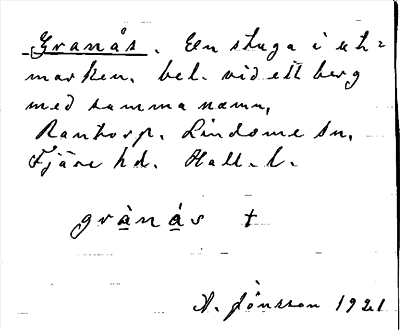 Granås. En stuga i ut-
marken, bel. vid ett berg
med samma namn,
Rantorp. Lindome sn,
Fjäre hd. Hall. l.
grànás †
A. Jönsson 1921